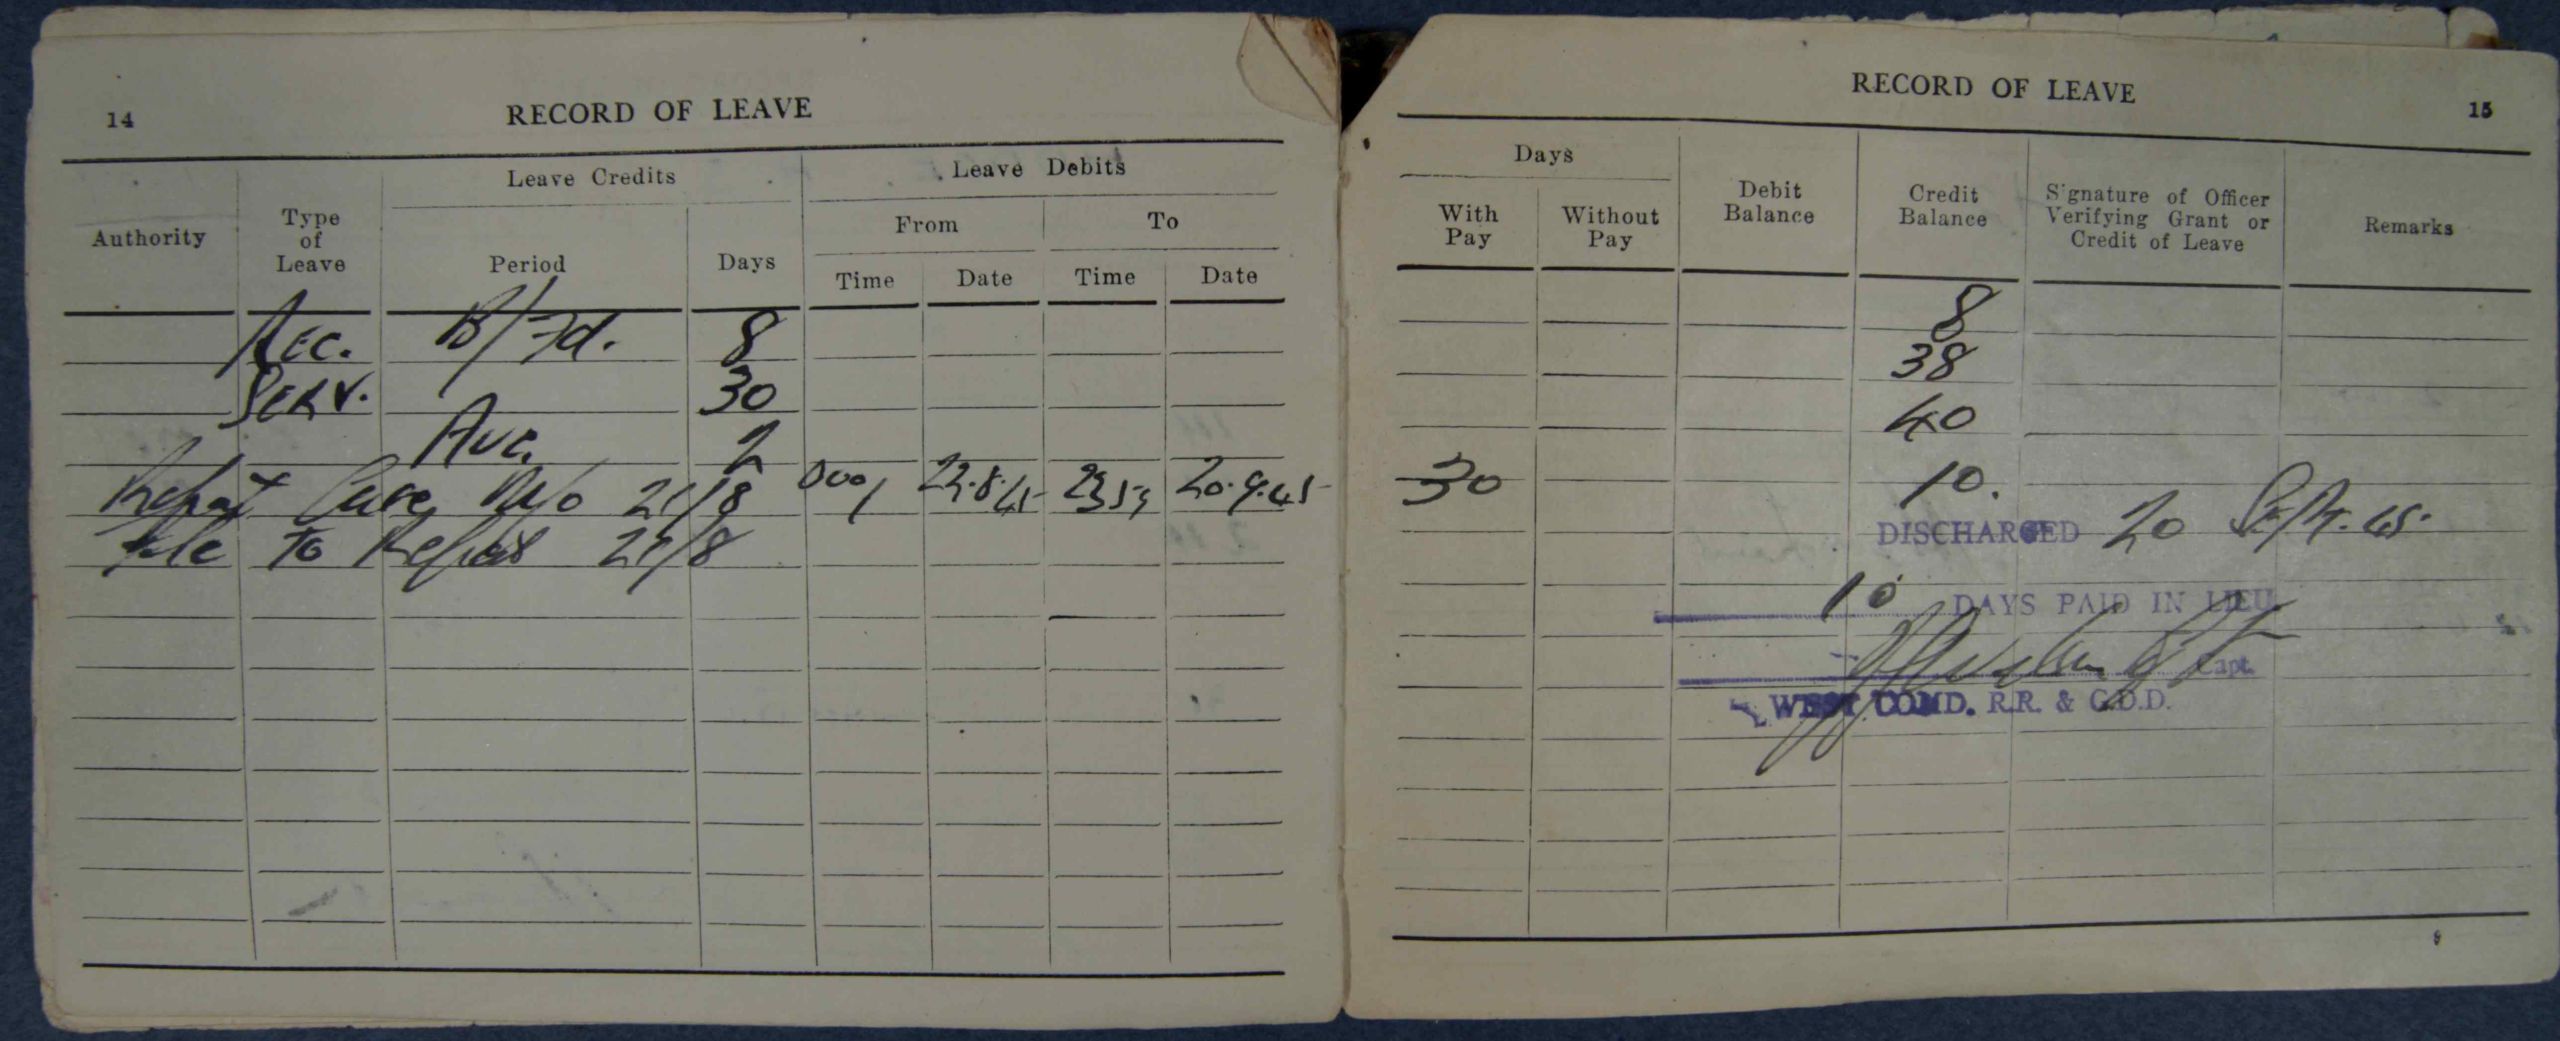 14
RECORD OF LEAVE
Authority Type of Leave Leave Credits Leave Debits
Period Days From To
Time Date Time Date
Rec. B/Fd. 8
Serv. 30
Aug. 2
Repat 21/8 0001 22.8.45 2359 20.9.45
to Repat 21/8
RECORD OF LEAVE
15
Days Debit Balance Credit Balance Signature of Officer Verifying Grant or Credit of Leave Remarks
With Pay Without Pay
8
38
40
30 10.
DISCHARGED 20 Sept. 45.
10 DAYS PAID IN LIEU
Capt.
WEST COMD. R.R. & G.O.D.